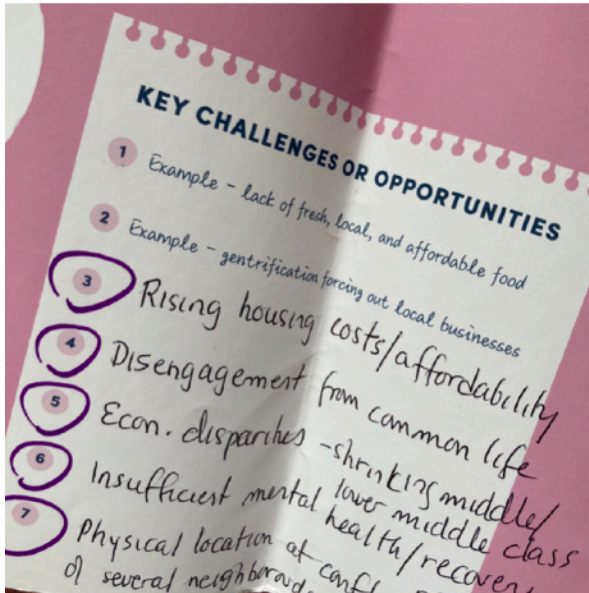 KEY CHALLENGES OR OPPORTUNITIES
1 Example - lack of fresh, local, and affordable food
2 Example - gentrification forcing out local businesses
3 Rising housing costs/affordability
4 Disengagement from common life
5 Econ. disparities - shrinking middle/
lower middle class
6 Insufficient mental health/recovery
7 Physical location at
of several neighborhoods